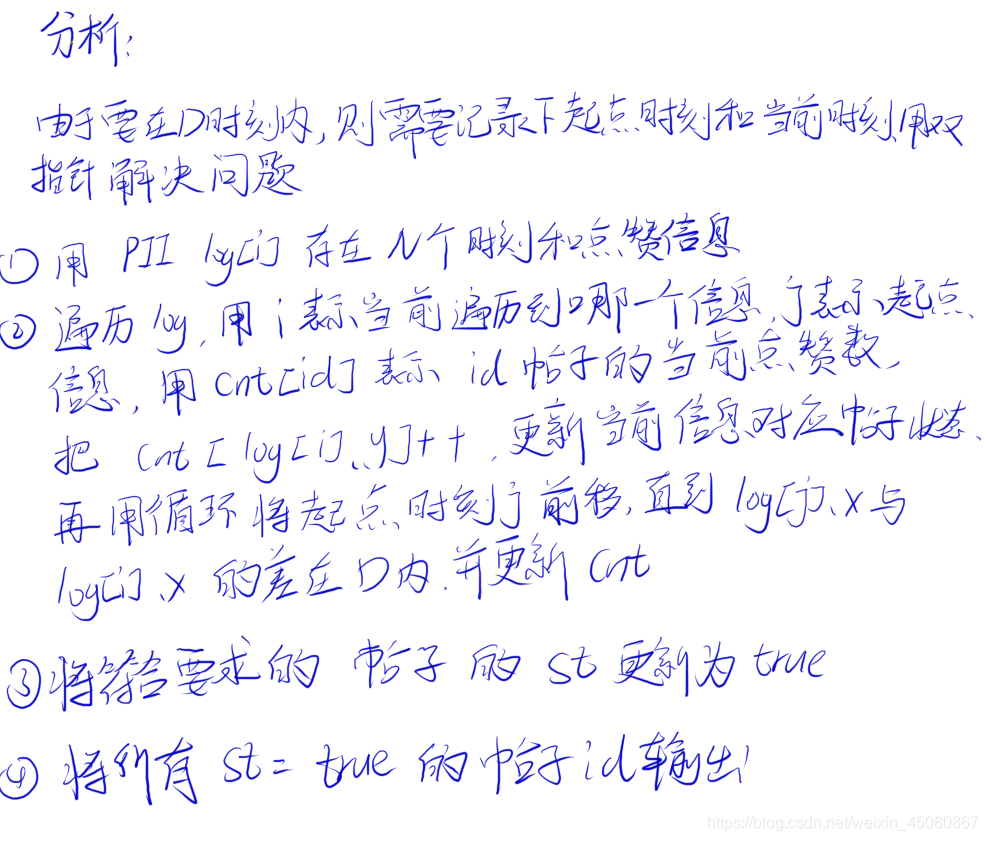 分析:
由于要在D时刻内,则需要记录下起点时刻和当前时刻,用双
指针解决问题
① 用 PII log[i] 存在 N个时刻和点赞信息
② 遍历log,用i表示当前遍历到哪一个信息,j表示起点
信息,用cnt[id]表示 id帖子的当前点赞数,
把 cnt[log[i].y]++,更新当前信息对应帖子状态、
再用循环将起点时刻j前移,直到log[j].x与
log[i].x的差在D内,并更新cnt
③将符合要求的 帖子的st更新为true
④ 将所有 st=true 的帖子id输出
https://blog.csdn.net/weixin_45080867